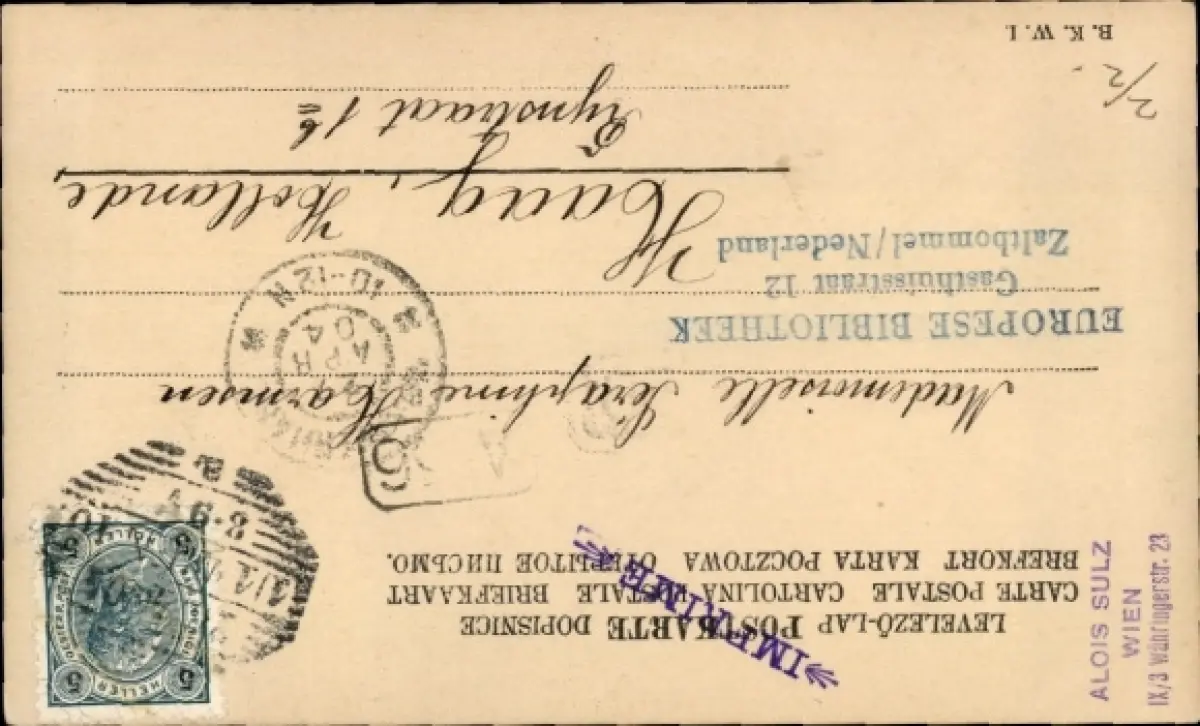 LEVELEZŐ-LAP POSTKARTE DOPISNICE
CARTE POSTALE CARTOLINA POSTALE BRIEFKAART
BREFKORT KARTA POCZTOWA ОТКРЫТОЕ ПИСЬМО.
IMPRIMÉ
ALOIS SULZ
WIEN
IX/3 Währingerstr. 23
5 HELLER 5
HELLER
8·9V
Mademoiselle Séraphine Harmsen
APR
04
10-12N
EUROPESE BIBLIOTHEEK
Gasthuisstraat 12
Zaltbommel/Nederland
Haag, Hollande,
Rynstraat 1 b
2/2.
B. K. W. I.